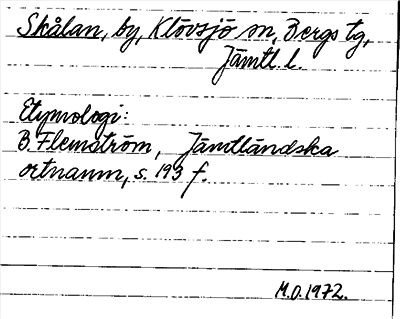 Skålan, by, Klövsjö sn, Bergs tg,
Jämtl. l.
Etymologi:
B. Flemström, Jämtländska
ortnamn, s. 193 f.
M.O.1972.